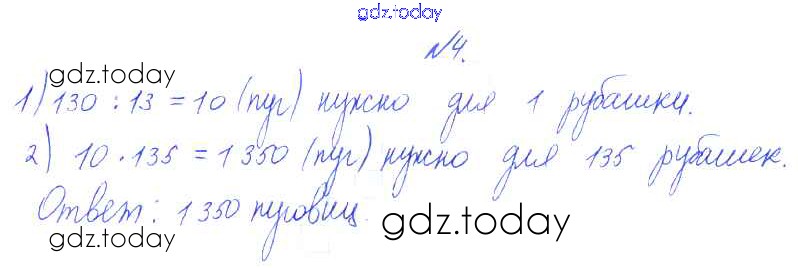 gdz.today
№4.
gdz.today
1) 130 : 13 = 10 (пуг) нужно для 1 рубашки.
2) 10 · 135 = 1350 (пуг) нужно для 135 рубашек.
Ответ: 1350 пуговиц.
gdz.today
gdz.today